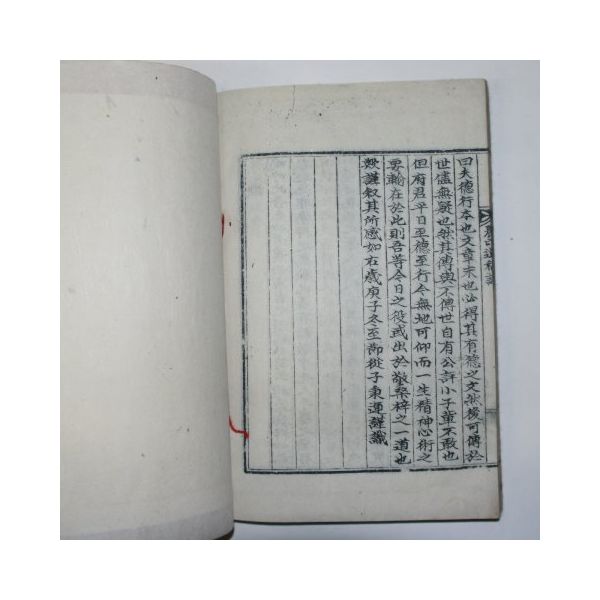 曰夫德行本也文章末也必得其有德之文然後可傳於
世儘無疑也然其傳與不傳世自有公評小子輩不敢也
但府君平日至德至行今無地可仰而一生精神心術之
要輪在於此則吾等今日之役或出於敬桑梓之一道也
謹叙其所感如右歲庚子冬至節從子秉運謹識
遺稿